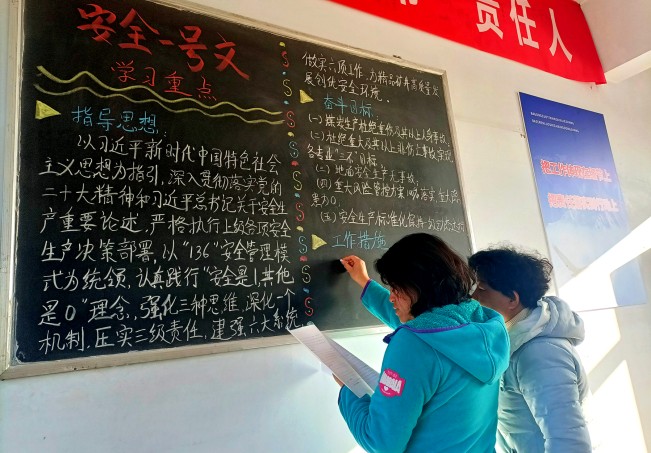 责任人
安全一号文
学习重点
指导思想:
以习近平新时代中国特色社会
主义思想为指引，深入贯彻落实党的
二十大精神和习近平总书记关于安全生
产重要论述，严格执行上级各项安全
生产决策部署，以“136”安全管理模
式为统领，认真践行“安全是1其他
是0”理念，强化三种思维，深化一个
机制，压实三级责任，建强六大系统
做实六项工作，为精品矿井高质量发
展创优安全环境。
奋斗目标:
(一)煤炭生产杜绝重伤及其以上人身事故;
(二)杜绝重大及其以上非伤亡事故,实现
各专业“三不”目标
(三)地面安全生产无事故;
(四)重大风险管控方案100%落实,重大隐
患为0;
(五)安全生产标准化保持一级
工作措施